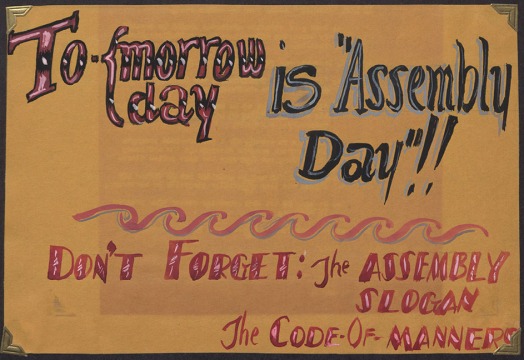 To-{morrow is "Assembly
day Day"!!
DON'T FORGET: The ASSEMBLY
SLOGAN
The CODE-OF-MANNERS